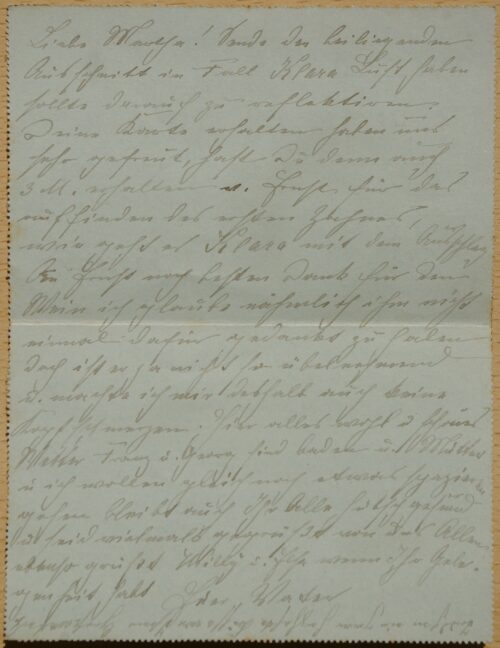 Liebe Martha! Sende den beiliegenden
Ausschnitt im Fall Klara Lust haben
sollte darauf zu reflektiren.
Deine Karte erhalten haben uns
sehr gefreut, hast Du denn auch
3 M. erhalten v. Ernst für das
auffinden des ersten Zahnes,
wie geht es Klara mit dem Ausschlag
An Ernst noch besten Dank für den
Wein ich glaube nähmlich ihm nicht
einmal dafür gedankt zu haben
doch ist er ja nicht so übelnehmend
u. mache ich mir deshalb auch keine
Kopfschmerzen. Hier alles wohl u schönes
Wetter Franz u. Georg sind baden u. Mutter
u ich wollen gleich noch etwas spazieren
gehen bleibt auch Ihr Alle hübsch gesund
u seid vielmals gegrüßt von uns Allen
ebenso grüßt Willy u. wenn Ihr Gele-
genheit habt Euer Vater